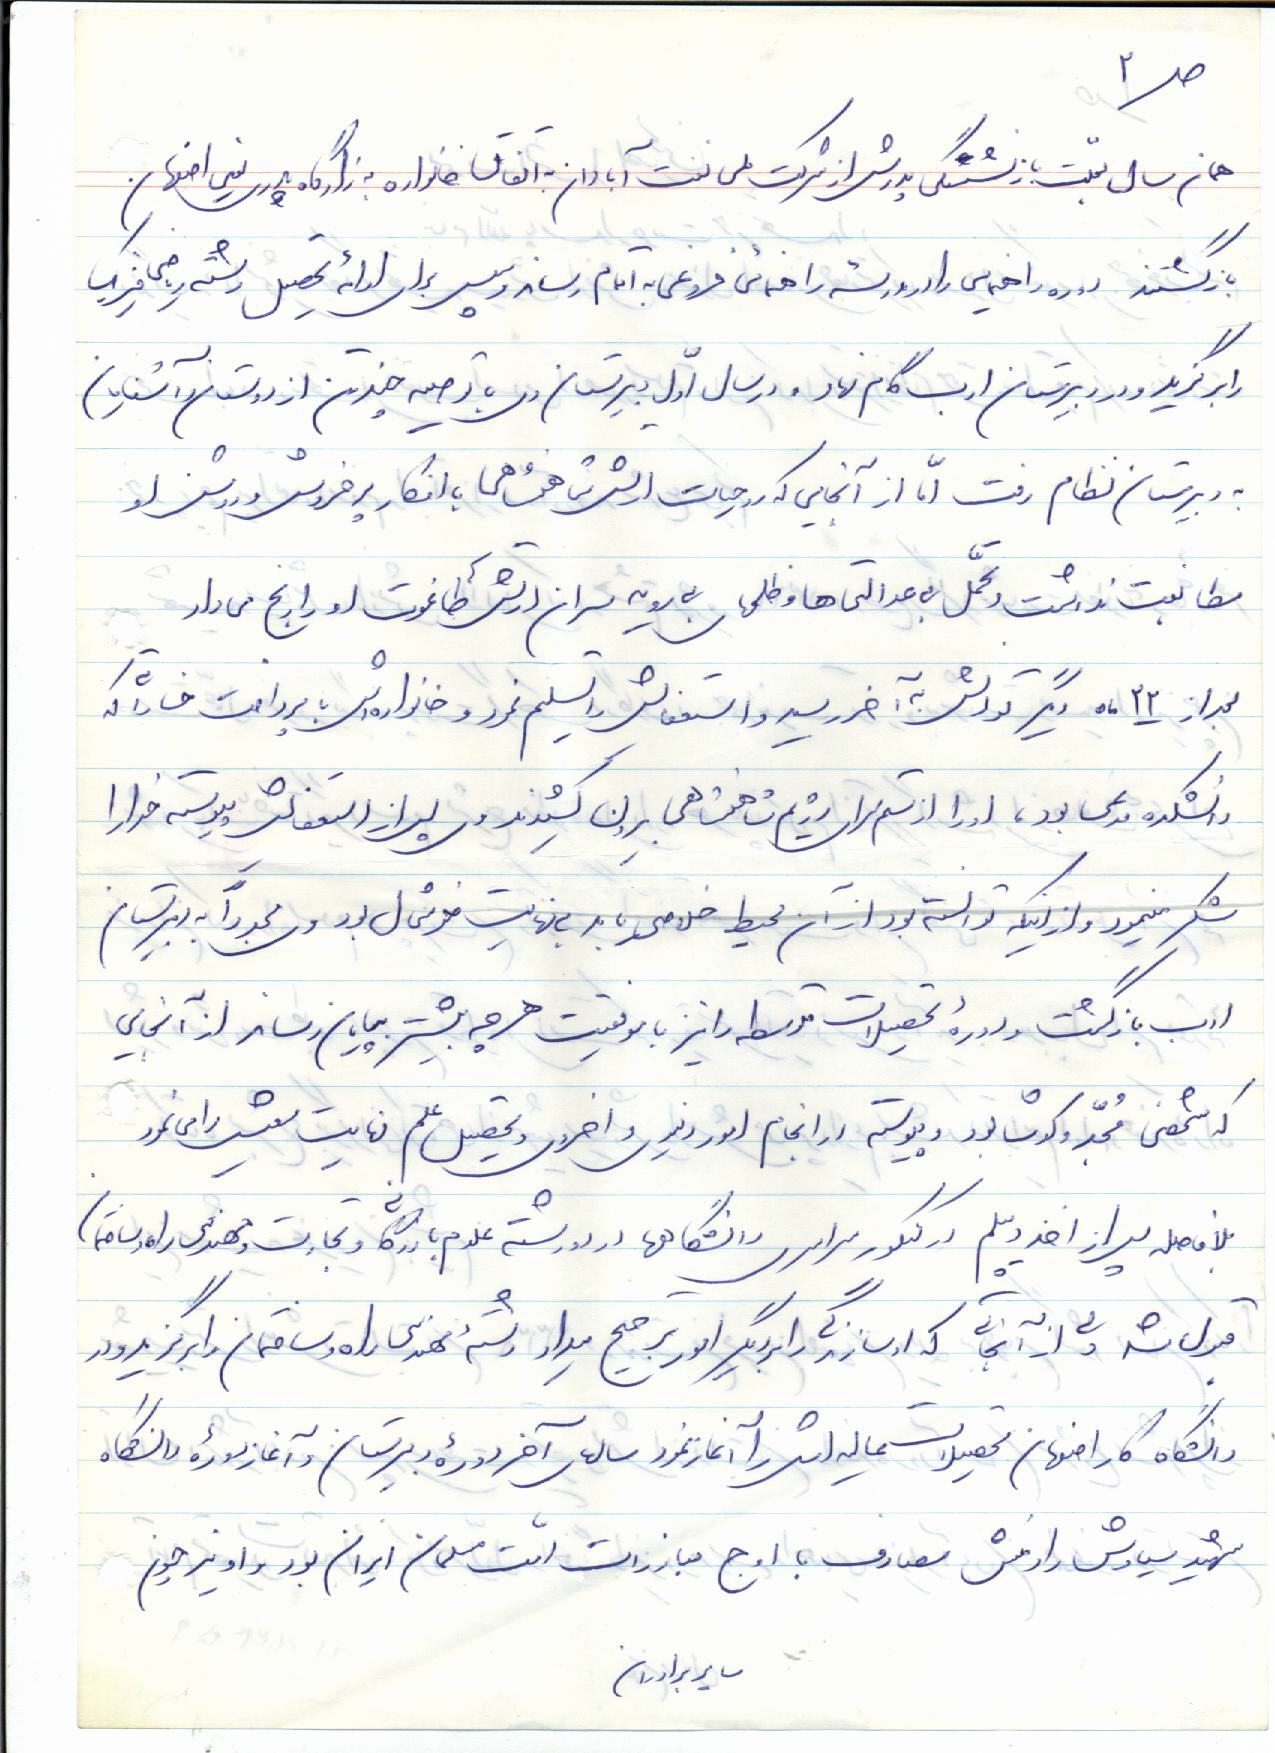 ص ۲
همان سال بعلت بازنشستگی پدرش از شرکت ملی نفت آبادان به اتفاق خانواده به زادگاه پدری یعنی اصفهان
بازگشتند دوره راهنمایی را در مدرسه راهنمائی فروغی به اتمام رساند و سپس برای ادامه تحصیل رشته ریاضی فیزیک
را برگزید و در دبیرستان ادب گام نهاد. در سال اوّل دبیرستان وی با توصیه چند تن از دوستان و آشنایان
به دبیرستان نظام رفت امّا از آنجایی که روحیات ارتش شاهنشاهی با افکار پرخروش و روشن او
مطابقت نداشت و تحمّل بی عدالتی ها و ظلمهای بی رویه سران ارتش طاغوت او را رنج می داد
بعد از ۲۲ ماه دیگر توانش به آخر رسید و استعفایش را تسلیم نمود و خانواده اش با پرداخت خساراتی که
دانشکده مدعی بود، او را از ستم سرای رژیم شاهنشاهی بیرون کشیدند وی پس از استعفایش پیوسته خدا را
شکر مینمود و از اینکه توانسته بود از آن محیط خلاصی یابد بی نهایت خوشحال بود وی مجدداً به دبیرستان
ادب بازگشت و دورهٔ تحصیلات متوسطه را نیز با موفقیت هر چه بیشتر بپایان رساند از آنجایی
که شخصی مُجّد و کوشا بود و پیوسته در انجام امور دنیوی و اخروی و تحصیل علم نهایت سعیش را می نمود
بلافاصله پس از اخذ دیپلم در کنکور سراسری دانشگاهها در دو رشته علوم بازرگانی و تجارت و مهندسی راه و ساختمان
قبول شد ولی از آنجائی که او سازندگی را بر دیگر امور ترجیح میداد رشتهٔ مهندسی راه و ساختمان را برگزید و در
دانشگاه کار اصفهان تحصیلات عالیه اش را آغاز نمود سالهای آخر دورهٔ دبیرستان و آغاز دورهٔ دانشگاه
شهید سیاوش رادمنش مصادف با اوج مبارزات امّت مسلمان ایران بود و او نیز چون
سایر برادران